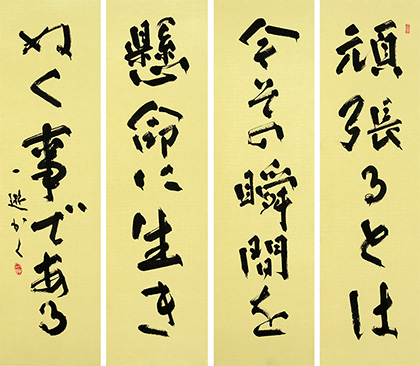 頑張るとは
今その瞬間を
懸命に生き
ぬく事である
一遊かく